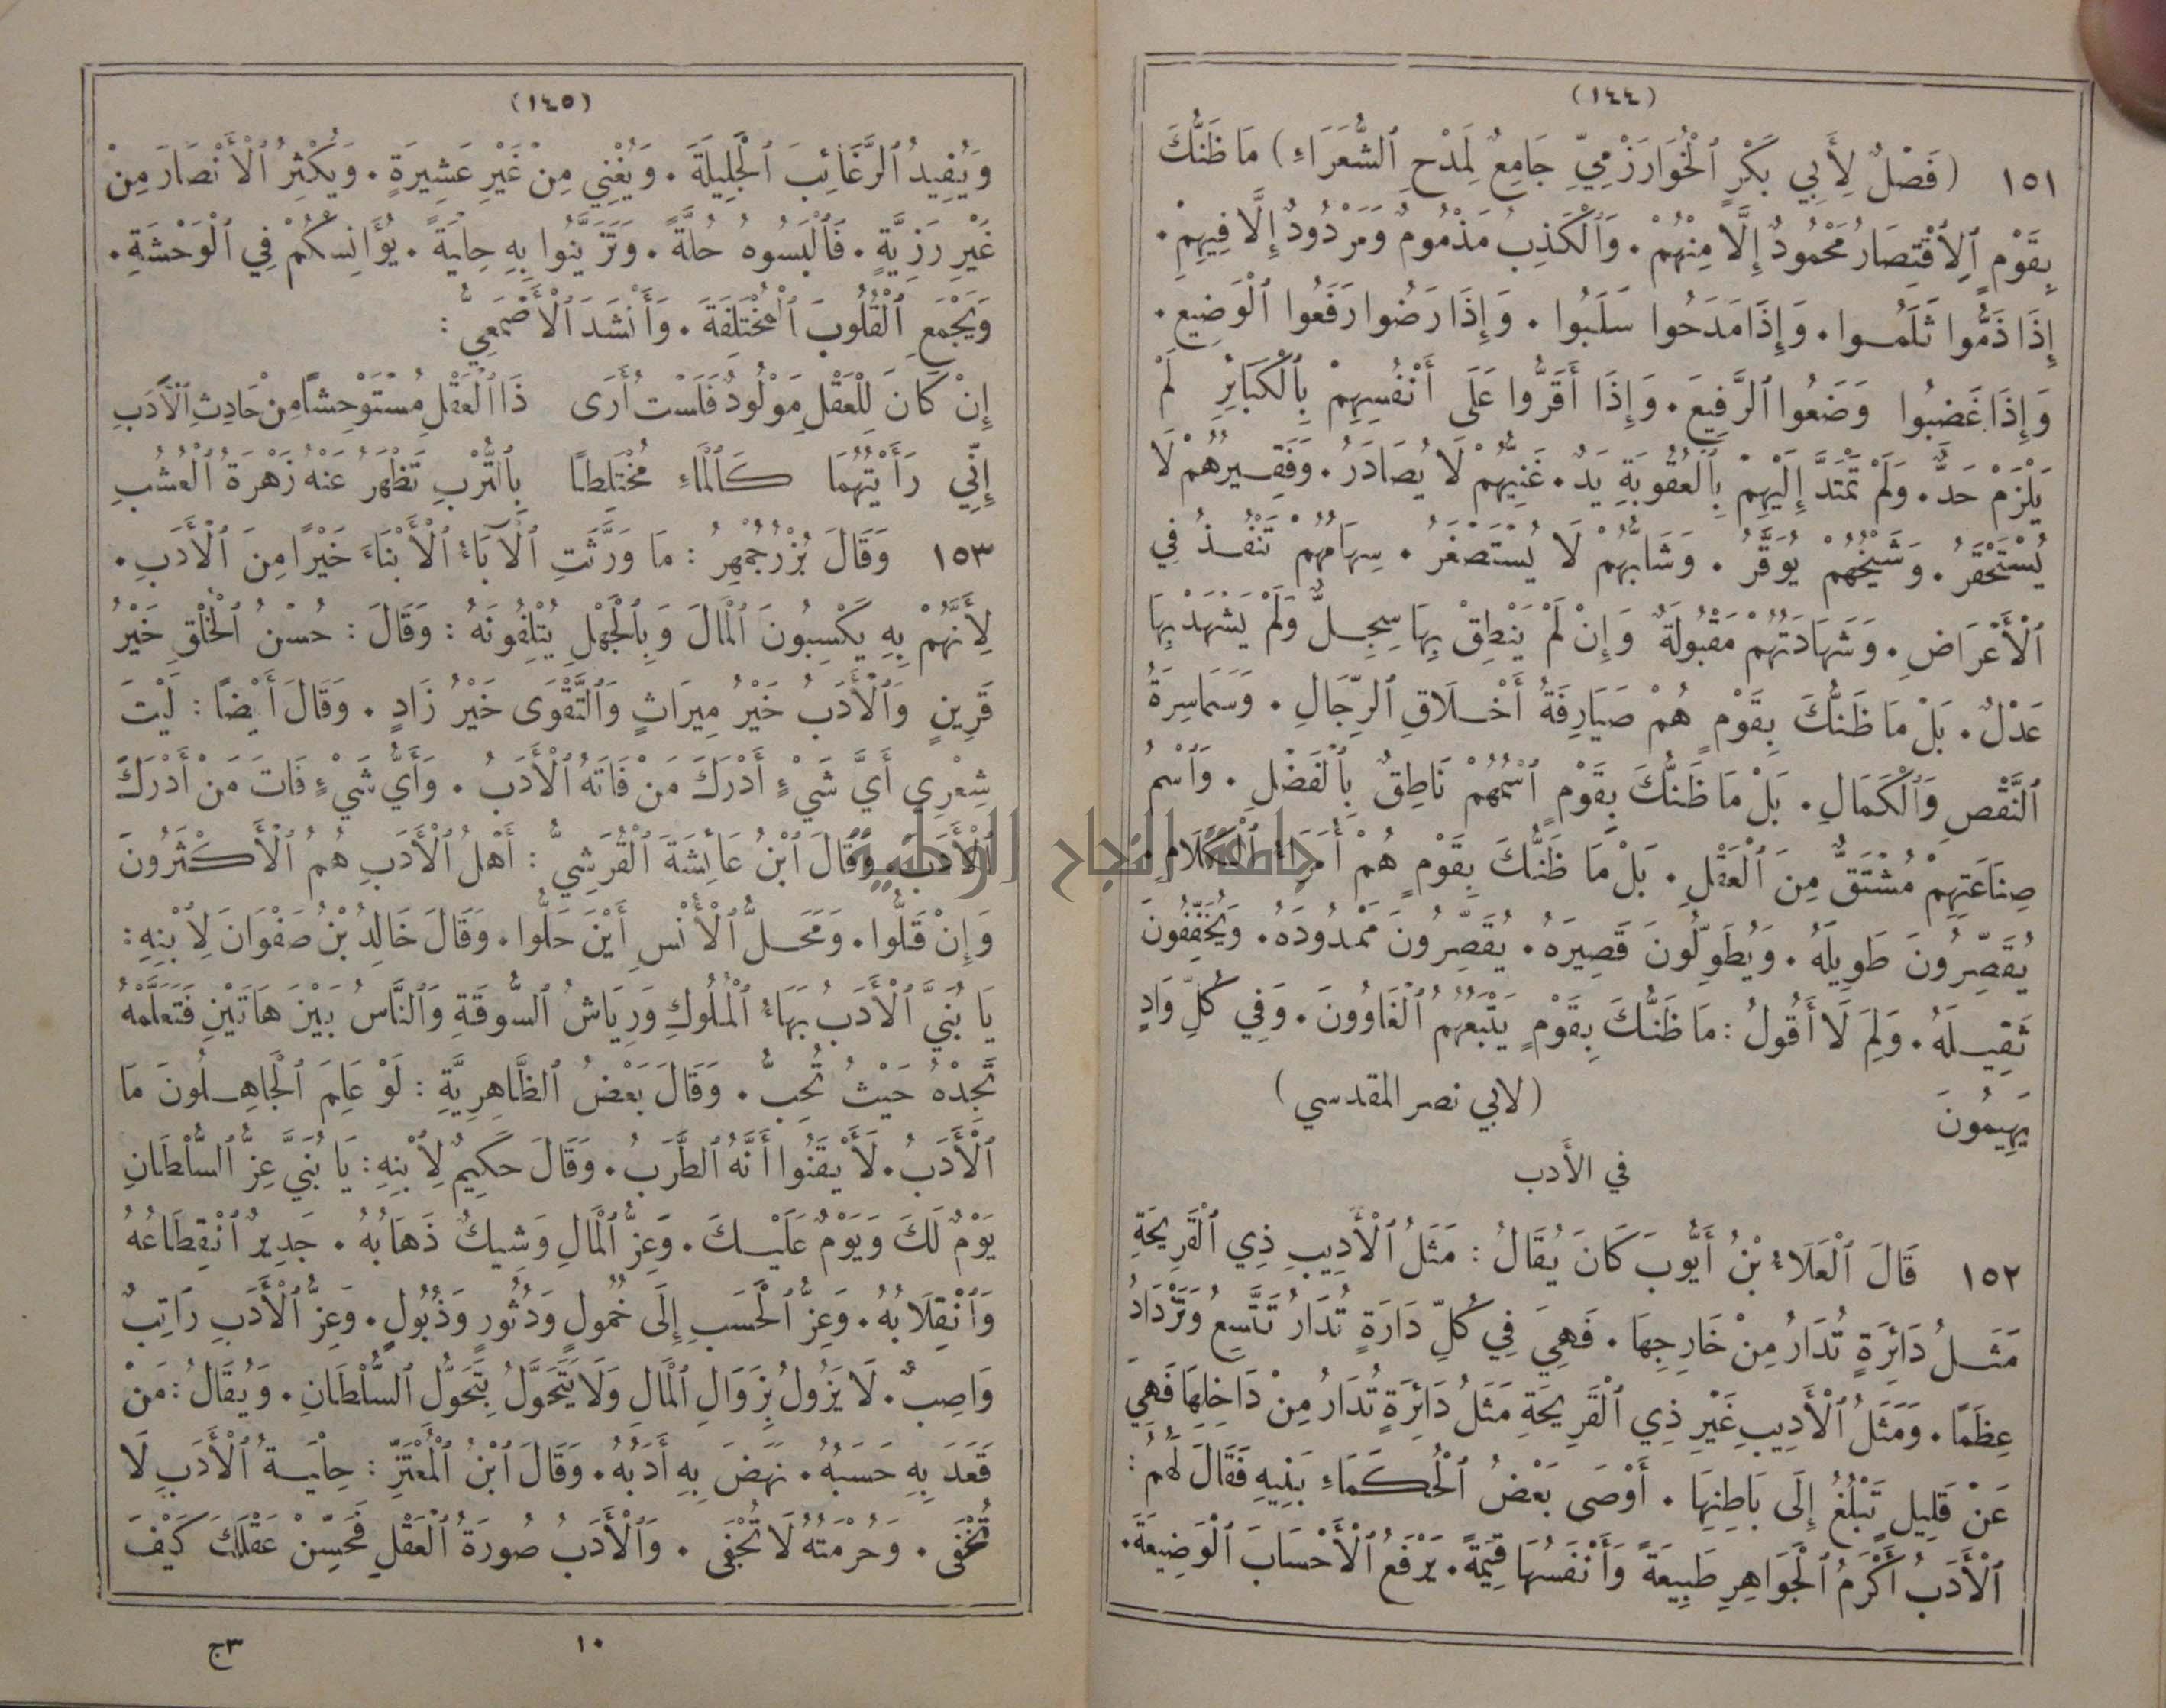 (١٤٤)
١٥١ (فَصْلٌ لِأَبِي بَكْرٍ ٱلْخُوَارَزْمِيِّ جَامِعٌ لِمَدْحِ ٱلشُّعَرَاءِ) مَا ظَنُّكَ
بِقَوْمٍ ٱلِٱقْتِصَارُ مَحْمُودٌ إِلَّا مِنْهُمْ. وَٱلْكَذِبُ مَذْمُومٌ وَمَرْدُودٌ إِلَّا فِيهِمْ.
إِذَا ذَمُّوا ثَلَمُوا. وَإِذَا مَدَحُوا سَلَبُوا. وَإِذَا رَضُوا رَفَعُوا ٱلْوَضِيعَ.
وَإِذَا غَضِبُوا وَضَعُوا ٱلرَّفِيعَ. وَإِذَا أَقَرُّوا عَلَى أَنْفُسِهِمْ بِٱلْكَبَائِرِ لَمْ
يَلْزَمْ حَدٌّ. وَلَمْ تَمْتَدَّ إِلَيْهِمْ بِٱلْعُقُوبَةِ يَدٌ. غَنِيُّهُمْ لَا يُصَادَرُ. وَفَقِيرُهُمْ لَا
يُسْتَحْقَرُ. وَشَيْخُهُمْ يُوَقَّرُ. وَشَابُّهُمْ لَا يُسْتَصْغَرُ. سِهَامُهُمْ تَنْفُذُ فِي
ٱلْأَعْرَاضِ. وَشَهَادَتُهُمْ مَقْبُولَةٌ وَإِنْ لَمْ يَنْطِقْ بِهَا سِجِلٌّ وَلَمْ يَشْهَدْ بِهَا
عَدْلٌ. بَلْ مَا ظَنُّكَ بِقَوْمٍ هُمْ صَيَارِفَةُ أَخْلَاقِ ٱلرِّجَالِ. وَسَمَاسِرَةُ
ٱلنَّقْصِ وَٱلْكَمَالِ. بَلْ مَا ظَنُّكَ بِقَوْمٍ ٱسْمُهُمْ نَاطِقٌ بِٱلْفَضْلِ. وَٱسْمُ
صِنَاعَتِهِمْ مُشْتَقٌّ مِنَ ٱلْعَقْلِ. بَلْ مَا ظَنُّكَ بِقَوْمٍ هُمْ أُمَرَاءُ ٱلْكَلَامِ.
يُقَصِّرُونَ طَوِيلَهُ. وَيُطَوِّلُونَ قَصِيرَهُ. يُقَصِّرُونَ مَمْدُودَهُ. وَيُخَفِّفُونَ
ثَقِيلَهُ. وَلِمَ لَا أَقُولُ: مَا ظَنُّكَ بِقَوْمٍ يَتْبَعُهُمُ ٱلْغَاوُونَ. وَفِي كُلِّ وَادٍ
يَهِيمُونَ (لابي نصر المقدسي)
في الأَدب
١٥٢ قَالَ ٱلْعَلَاءُ بْنُ أَيُّوبَ كَانَ يُقَالُ: مَثَلُ ٱلْأَدِيبِ ذِي ٱلْقَرِيحَةِ
مَثَلُ دَائِرَةٍ تُدَارُ مِنْ خَارِجِهَا. فَهِيَ فِي كُلِّ دَارَةٍ تُدَارُ تَتَّسِعُ وَتَزْدَادُ
عِظَمًا. وَمَثَلُ ٱلْأَدِيبِ غَيْرِ ذِي ٱلْقَرِيحَةِ مَثَلُ دَائِرَةٍ تُدَارُ مِنْ دَاخِلِهَا فَهِيَ
عَنْ قَلِيلٍ تَبْلُغُ إِلَى بَاطِنِهَا. أَوْصَى بَعْضُ ٱلْحُكَمَاءِ بَنِيهِ فَقَالَ لَهُمْ:
ٱلْأَدَبُ أَكْرَمُ ٱلْجَوَاهِرِ طَبِيعَةً وَأَنْفَسُهَا قِيمَةً. يَرْفَعُ ٱلْأَحْسَابَ ٱلْوَضِيعَةَ.
(١٤٥)
وَيُفِيدُ ٱلرَّغَائِبَ ٱلْجَلِيلَةَ. وَيُغْنِي مِنْ غَيْرِ عَشِيرَةٍ. وَيُكْثِرُ ٱلْأَنْصَارَ مِنْ
غَيْرِ رَزِيَّةٍ. فَٱلْبَسُوهُ حُلَّةً. وَتَزَيَّنُوا بِهِ حِلْيَةً. يُؤَانِسْكُمْ فِي ٱلْوَحْشَةِ.
وَيَجْمَعِ ٱلْقُلُوبَ ٱلْمُخْتَلِفَةَ. وَأَنْشَدَ ٱلْأَصْمَعِيُّ:
إِنْ كَانَ لِلْعَقْلِ مَوْلُودٌ فَلَسْتُ أَرَى ذَا ٱلْعَقْلِ مُسْتَوْحِشًا مِنْ حَادِثِ ٱلْأَدَبِ
إِنِّي رَأَيْتُهُمَا كَٱلْمَاءِ مُخْتَلِطًا بِٱلتُّرْبِ تَظْهَرُ عَنْهُ زَهْرَةُ ٱلْعُشُبِ
١٥٣ وَقَالَ بُزُرْجُمِهْرُ: مَا وَرَّثَتِ ٱلْآبَاءُ ٱلْأَبْنَاءَ خَيْرًا مِنَ ٱلْأَدَبِ.
لِأَنَّهُمْ بِهِ يَكْسِبُونَ ٱلْمَالَ وَبِٱلْجَهْلِ يُتْلِفُونَهُ: وَقَالَ: حُسْنُ ٱلْخُلْقِ خَيْرُ
قَرِينٍ وَٱلْأَدَبُ خَيْرُ مِيرَاثٍ وَٱلتَّقْوَى خَيْرُ زَادٍ. وَقَالَ أَيْضًا: لَيْتَ
شِعْرِي أَيَّ شَيْءٍ أَدْرَكَ مَنْ فَاتَهُ ٱلْأَدَبُ. وَأَيُّ شَيْءٍ فَاتَ مَنْ أَدْرَكَ
ٱلْأَدَبَ. وَقَالَ ٱبْنُ عَائِشَةَ ٱلْقُرَشِيُّ: أَهْلُ ٱلْأَدَبِ هُمُ ٱلْأَكْثَرُونَ
وَإِنْ قَلُّوا. وَمَحَلُّ ٱلْأُنْسِ أَيْنَ حَلُّوا. وَقَالَ خَالِدُ بْنُ صَفْوَانَ لِٱبْنِهِ:
يَا بُنَيَّ ٱلْأَدَبُ بَهَاءُ ٱلْمُلُوكِ وَرِيَاشُ ٱلسُّوقَةِ وَٱلنَّاسُ بَيْنَ هَاتَيْنِ فَتَعَلَّمْهُ
تَجِدْهُ حَيْثُ تُحِبُّ. وَقَالَ بَعْضُ ٱلظَّاهِرِيَّةِ: لَوْ عَلِمَ ٱلْجَاهِلُونَ مَا
ٱلْأَدَبُ. لَأَيْقَنُوا أَنَّهُ ٱلطَّرَبُ. وَقَالَ حَكِيمٌ لِٱبْنِهِ: يَا بُنَيَّ عِزُّ ٱلسُّلْطَانِ
يَوْمٌ لَكَ وَيَوْمٌ عَلَيْكَ. وَعِزُّ ٱلْمَالِ وَشِيكٌ ذَهَابُهُ. جَدِيرٌ ٱنْقِطَاعُهُ
وَٱنْقِلَابُهُ. وَعِزُّ ٱلْحَسَبِ إِلَى خُمُولٍ وَدُثُورٍ وَذُبُولٍ. وَعِزُّ ٱلْأَدَبِ رَاتِبٌ
وَاصِبٌ. لَا يَزُولُ بِزَوَالِ ٱلْمَالِ وَلَا يَتَحَوَّلُ بِتَحَوُّلِ ٱلسُّلْطَانِ. وَيُقَالُ: مَنْ
قَعَدَ بِهِ حَسَبُهُ. نَهَضَ بِهِ أَدَبُهُ. وَقَالَ ٱبْنُ ٱلْمُعْتَزِّ: حِلْيَةُ ٱلْأَدَبِ لَا
تَخْفَى. وَحُرْمَتُهُ لَا تُجْفَى. وَٱلْأَدَبُ صُورَةُ ٱلْعَقْلِ فَحَسِّنْ عَقْلَكَ كَيْفَ
١٠ ج٣
جامعة النجاح الوطنية